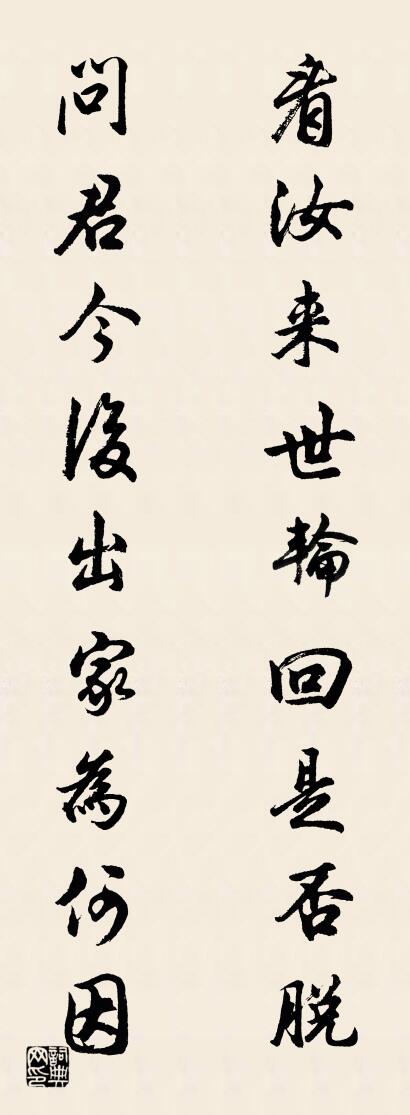 看汝来世輪回是否脱
問君今後出家為何因
詞典網印